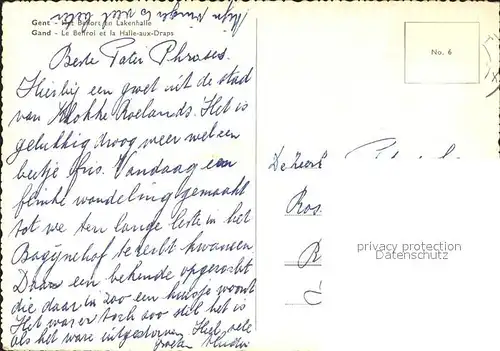 Mijn is veel beter
Gent - Het Belfort en Lakenhalle
Gand - Le Beffroi et la Halle-aux-Draps
No. 6
Beste Pater Phrases.
Hierbij een groet uit de stad
van Klokke Roelands. Het is
gelukkig droog weer wel een
beetje fris. Vandaag een
flinke wandeling gemaakt
tot we ten lange leste in het
Bagijnehof terecht kwamen
Daar een bekende opgezocht
die daar in zoo een huisje woont
Het was er toch zoo stil het is
als het ware uitgestorven Heel vele
groeten
De Zeer
Ros
R
privacy protection
Datenschutz